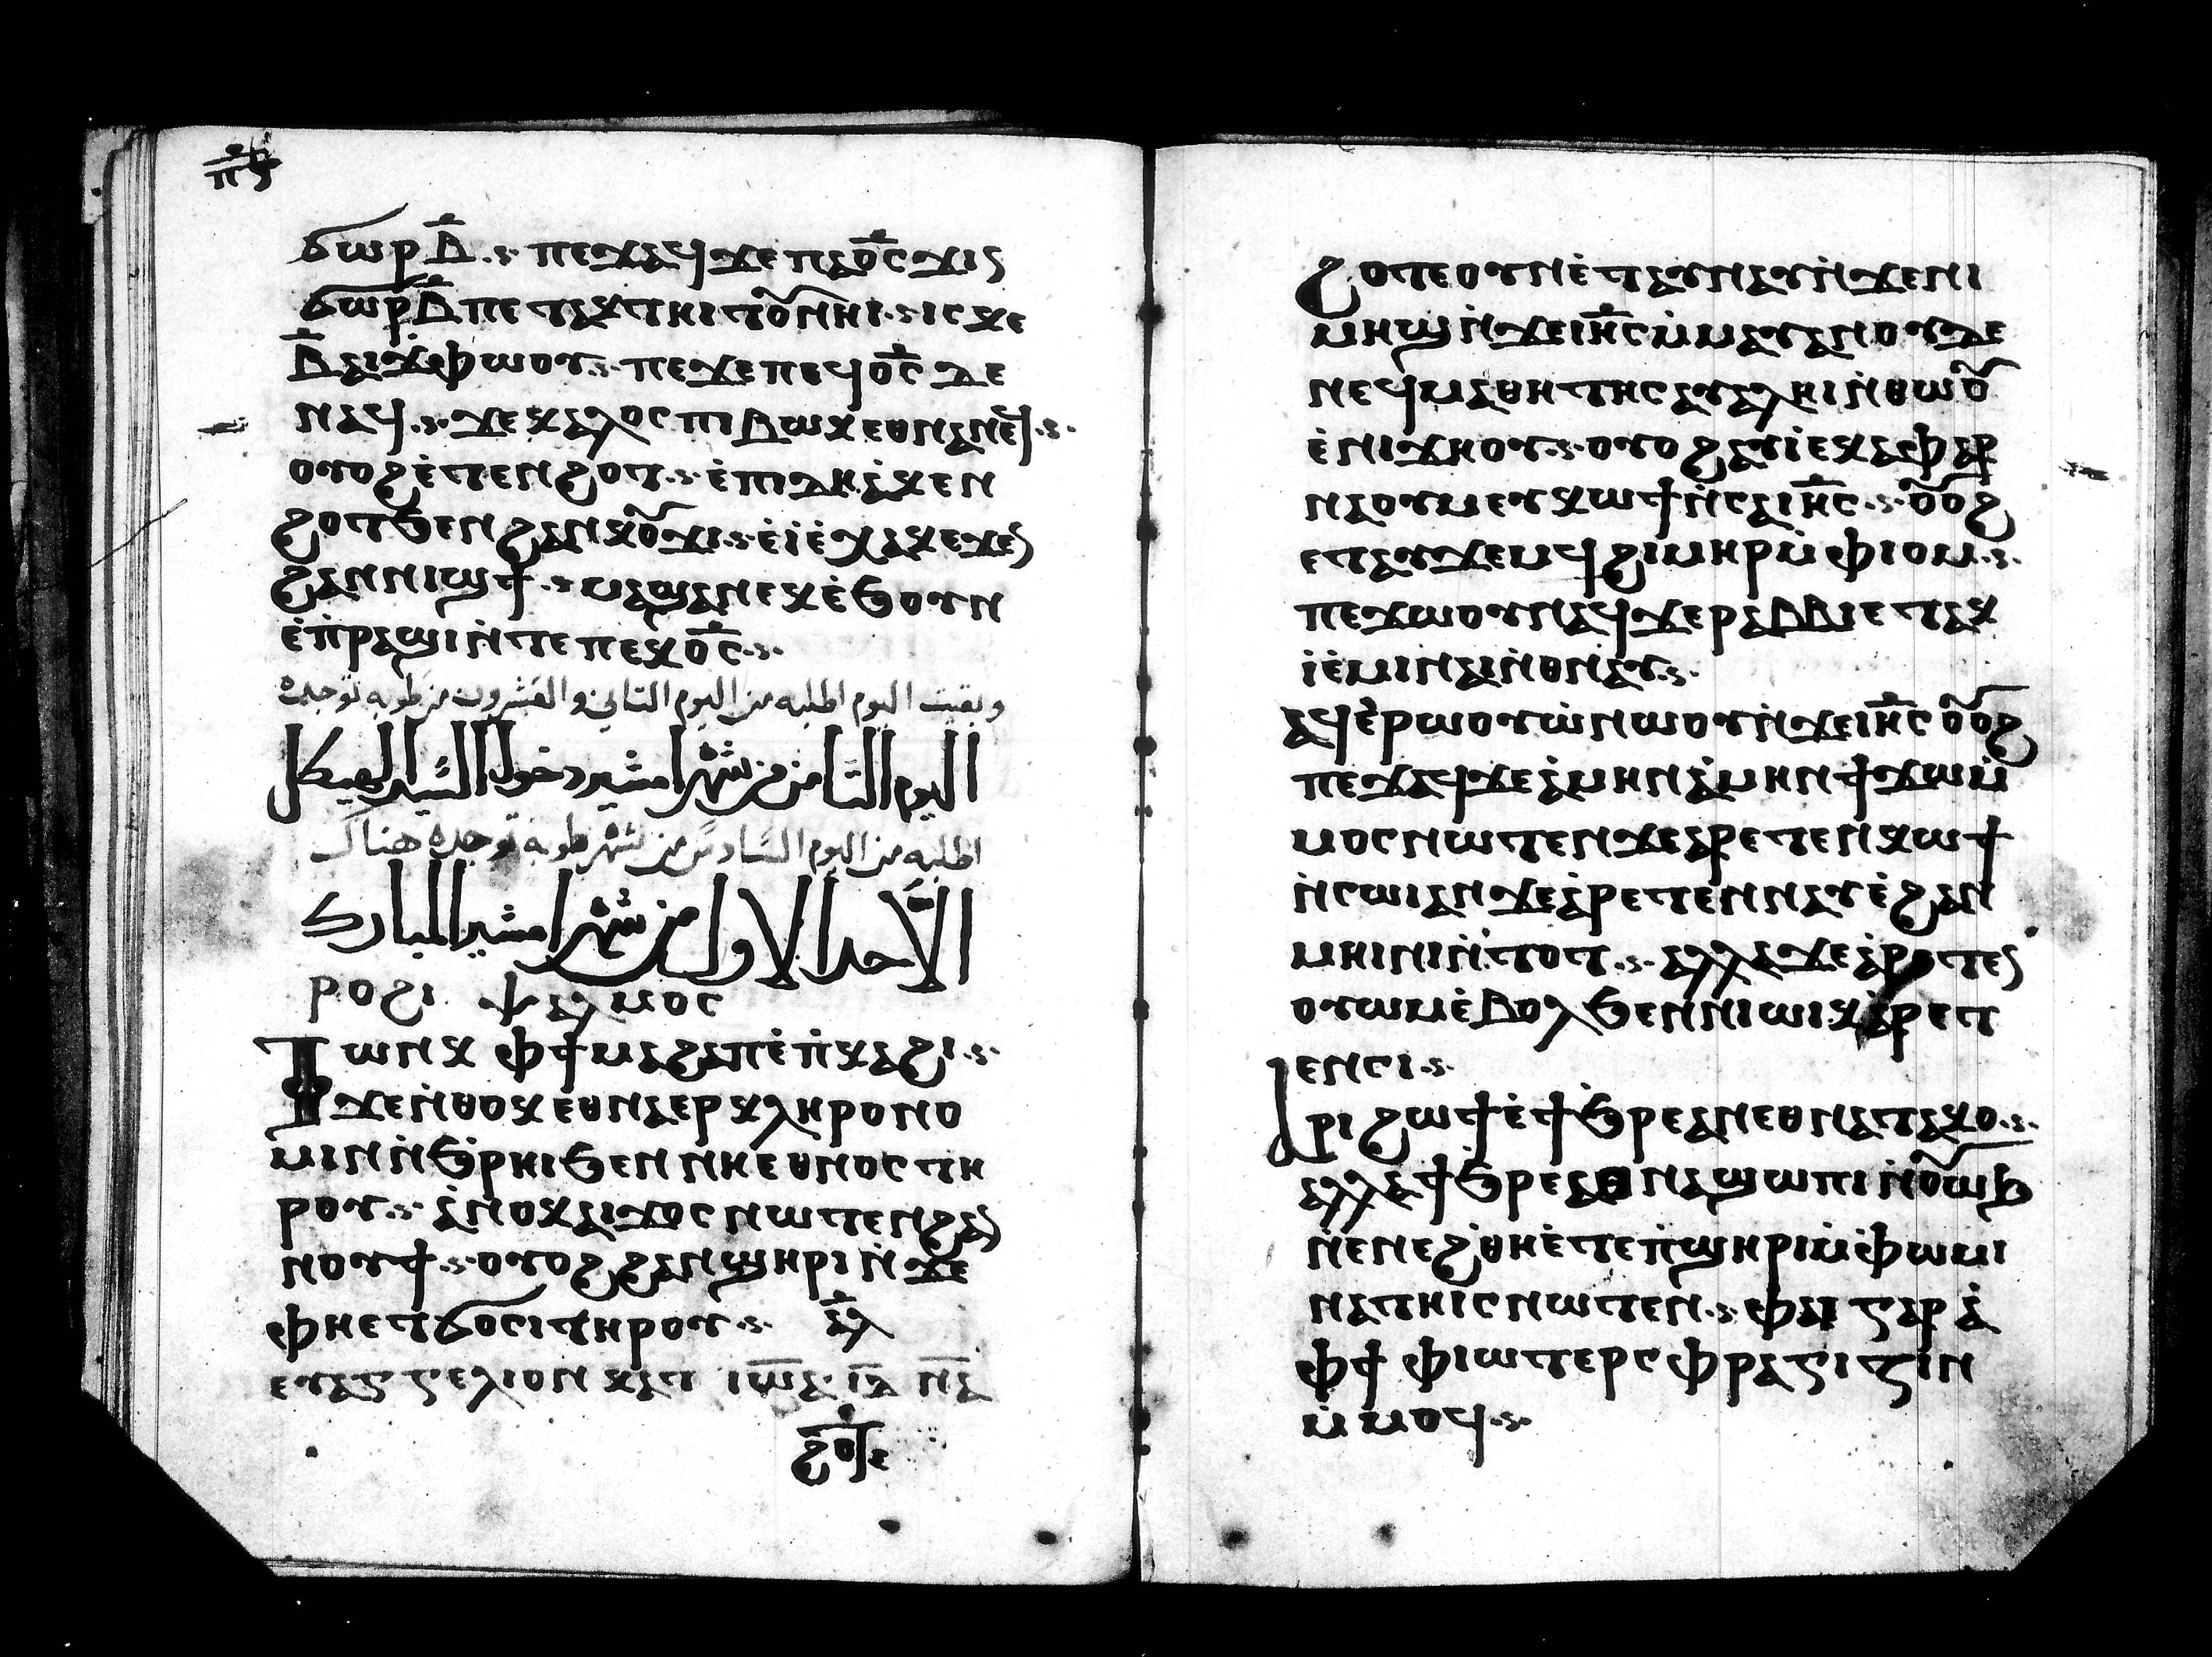 ⲡ̅ⲋ̅
ϭⲱⲣ ⲃ̅ ⲡⲉϫⲁϥ ϫⲉ ⲡⲁⲟ̅ⲥ̅ ϫⲓⲛ
ϭⲱⲣ ⲃ̅ ⲡⲉⲧⲁⲕⲧⲏⲓⲧⲟⲩ ⲛⲏⲓ ⲓⲥ ⲕⲉ
ⲃ̅ ⲁⲓϫ̀ⲫⲱⲟⲩ ⲡⲉϫⲉ ⲡⲉϥⲟ̅ⲥ̅ ⲇⲉ
ⲛⲁϥ ϫⲉ ⲕⲁⲗⲟⲥ ⲡⲓⲃⲱⲕ ⲉⲑⲛⲁⲛⲉϥ
ⲟⲩⲟϩ ⲉ̀ⲧⲉⲛϩⲟⲧ ⲉ̀ⲡⲓⲇⲏ ⲁ̀ⲕⲉⲛ
ϩⲟⲧ ϧⲉⲛ ϩⲁⲛⲕⲟⲩϫⲓ ⲉ̀ⲓⲉ̀ⲭⲁⲕ ⲉϫⲉⲛ
ϩⲁⲛⲛⲓϣϯ ⲙⲁϣⲉⲛⲁⲕ ⲉ̀ϧⲟⲩⲛ
ⲉ̀ⲡ̀ⲣⲁϣⲓ ⲛ̀ⲧⲉ ⲡⲉⲕⲟ̅ⲥ̅
وبقيت اليوم اطلبه من اليوم الثاني والعشرون من طوبه توجده
اليوم الثامن من شهر امشير دخول السيد الهيكل
اطلبه من اليوم السادس من شهر طوبه توجده هناك
الأحد الاول من شهر امشير المبارك
ⲣⲟϩⲓ ⲯⲁⲗⲙⲟⲥ
ⲧⲱⲛⲕ ⲫϯ ⲙⲁϩⲁⲡ ⲉ̀ⲡ̀ⲕⲁϩⲓ
ϫⲉ ⲛ̀ⲑⲟⲕ ⲉⲑⲛⲁⲉⲣⲕⲗⲏⲣⲟⲛⲟ
ⲙⲓⲛ ⲛ̀ϧ̀ⲣⲏⲓ ϧⲉⲛ ⲛⲏⲉⲑⲛⲟⲥ ⲧⲏ
ⲣⲟⲩ ⲁ̀ⲛⲟⲕ ⲁⲓϫⲟⲥ ⲛⲱⲧⲉⲛ ϩⲁⲛ
ⲛⲟⲩϯ ⲟⲩⲟϩ ϩⲁⲛϣⲏⲣⲓ ⲛ̀ⲇⲉ
ⲫⲏⲉⲧϭⲟⲥⲓ ⲧⲏⲣⲟⲩ ⲁ̅ⲗ̅
ⲉⲩⲁⲅⲅⲉⲗⲓⲟⲛ ⲕⲁⲧ ⲓⲱ̅ⲁ ⲓ̅ⲇ̅ ⲛ̅ⲁ̅
ϩⲟⲧⲉ
ϩⲟⲧⲉ ⲟⲩⲛ ⲉ̀ⲧⲁⲩⲛⲁⲩ ⲛ̀ϫⲉ ⲛⲓ
ⲙⲏϣ ⲛ̀ϫⲉ ⲓⲏ̅ⲥ̅ ⲙ̀ⲙⲁⲩ ⲁⲛ ⲟⲩⲇⲉ
ⲛⲉϥⲙⲁⲑⲏⲧⲏⲥ ⲁⲩⲁⲗⲏⲓ ⲛ̀ⲑⲱⲟⲩ
ⲉ̀ⲛⲓϫⲏⲟⲩ ⲟⲩⲟϩ ⲁⲩⲓ̀ ⲉⲕⲁⲫⲁⲣ
ⲛⲁⲟⲩⲙ ⲉⲩⲕⲱϯ ⲛ̀ⲥⲁ ⲓⲏ̅ⲥ̅ ⲟⲩⲟϩ
ⲉⲧⲁⲩϫⲉⲙϥ ϩⲓⲙⲏⲣ ⲙ̀ⲫⲓⲟⲙ
ⲡⲉϫⲱⲟⲩ ⲛⲁϥ ϫⲉ ⲣⲁⲃⲃⲓ ⲉⲧⲁⲕ
ⲓ̀ ⲉ̀ⲙⲓⲛⲁⲓ ⲛ̀ⲑⲛⲁⲩ
ⲁϥⲉ̀ⲣⲱⲟⲩⲱ̀ ⲛⲱⲟⲩ ⲛ̀ϫⲉ ⲓⲏ̅ⲥ̅ ⲟⲩⲟϩ
ⲡⲉϫⲁϥ ϫⲉ ⲁ̀ⲙⲏⲛ ⲁ̀ⲙⲏⲛ ϯϫⲱ ⲙ̀
ⲙⲟⲥ ⲛⲱⲧⲉⲛ ϫⲉ ⲁⲣⲉⲧⲉⲛⲕⲱϯ
ⲛ̀ⲥⲱⲓ ⲁⲛ ϫⲉ ⲁ̀ⲣⲉⲧⲉⲛⲛⲁⲩ ⲉ̀ϩⲁⲛ
ⲙⲏⲓⲛⲓ ⲛ̀ⲧⲟⲧ ⲁⲗⲗⲁ ϫⲉ ⲁ̀ⲣⲉⲧⲉⲛ
ⲟⲩⲱⲙ ⲉ̀ⲃⲟⲗ ϧⲉⲛ ⲛⲓⲱⲓⲕ ⲁ̀ⲣⲉⲧ
ⲉⲛⲥⲓ
ⲁⲣⲓϩⲱϯ ⲉ̀ϯϧⲣⲉ ⲁⲛ ⲉⲑⲛⲁⲧⲁⲕⲟ
ⲁⲗⲗⲁ ϯϧⲣⲉ ⲉⲑⲛⲁϣⲱⲡⲓ ⲛ̀ⲟⲩⲱⲛϧ
ⲛ̀ⲉⲛⲉϩ ⲑⲏⲉ̀ⲧⲉ ⲡ̀ϣⲏⲣⲓ ⲙ̀ⲫ̀ⲱⲙⲓ
ⲛⲁⲧⲏⲓⲥ ⲛⲱⲧⲉⲛ ⲫⲁⲓ ⲅⲁⲣ ⲁ̀
ⲫϯ ⲫⲓⲱⲧ ⲉⲣⲥⲫⲣⲁⲅⲓⲍⲓⲛ
ⲙ̀ⲙⲟϥ